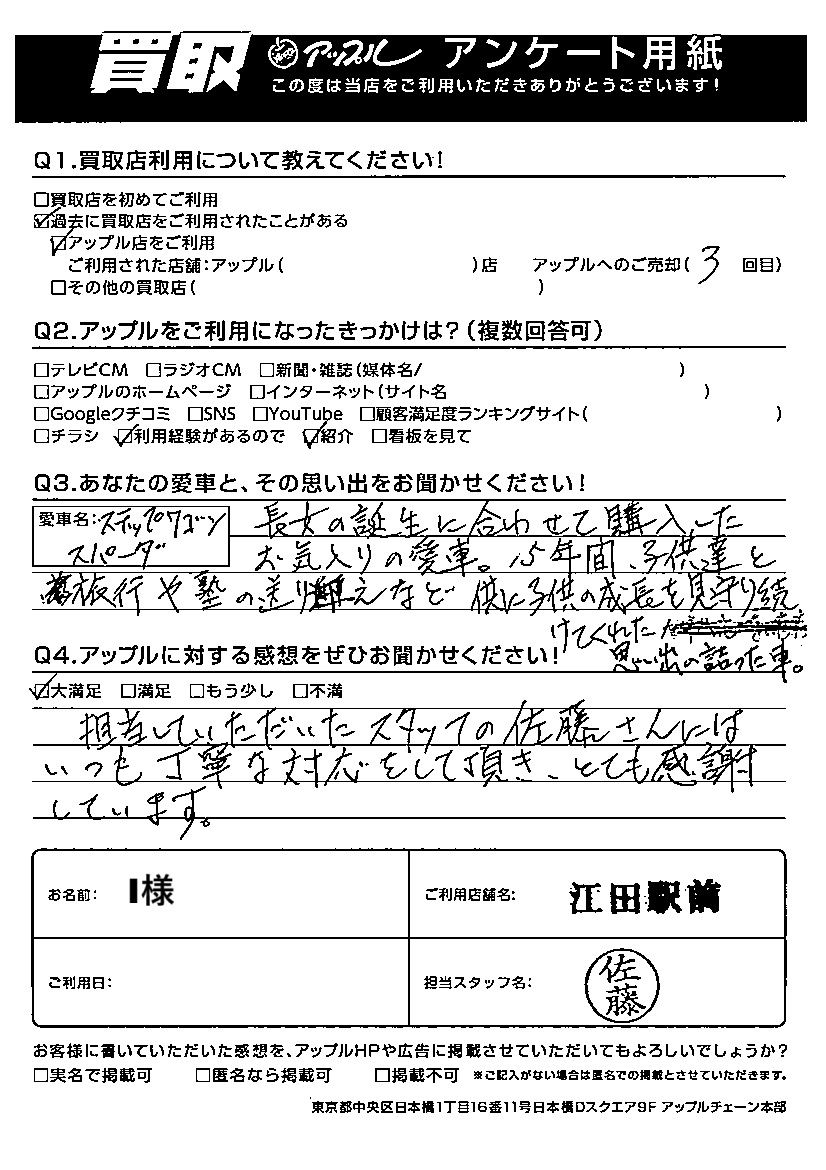 買取 アップル アンケート用紙
この度は当店をご利用いただきありがとうございます!
Q1.買取店利用について教えてください!
□買取店を初めてご利用
☑過去に買取店をご利用されたことがある
☑アップル店をご利用
ご利用された店舗:アップル( )店 アップルへのご売却( 3 回目)
□その他の買取店( )
Q2.アップルをご利用になったきっかけは?(複数回答可)
□テレビCM □ラジオCM □新聞・雑誌(媒体名/ )
□アップルのホームページ □インターネット(サイト名 )
□Googleクチコミ □SNS □YouTube □顧客満足度ランキングサイト( )
□チラシ ☑利用経験があるので ☑紹介 □看板を見て
Q3.あなたの愛車と、その思い出をお聞かせください!
愛車名:ステップワゴン
スパーダ
長女の誕生に合わせて購入した
お気入りの愛車。15年間、子供達と
旅行や塾の送り迎えなど 供に子供の成長を見守り続
けてくれた
思い出の詰った車。
Q4.アップルに対する感想をぜひお聞かせください!
☑大満足 □満足 □もう少し □不満
担当していただいたスタッフの佐藤さんには
いつも丁寧な対応をして頂き、とても感謝
しています。
お名前: I様
ご利用店舗名: 江田駅前
ご利用日:
担当スタッフ名: 佐藤
お客様に書いていただいた感想を、アップルHPや広告に掲載させていただいてもよろしいでしょうか?
□実名で掲載可 □匿名なら掲載可 □掲載不可 ※ご記入がない場合は匿名での掲載とさせていただきます。
東京都中央区日本橋1丁目16番11号日本橋Dスクエア9F アップルチェーン本部